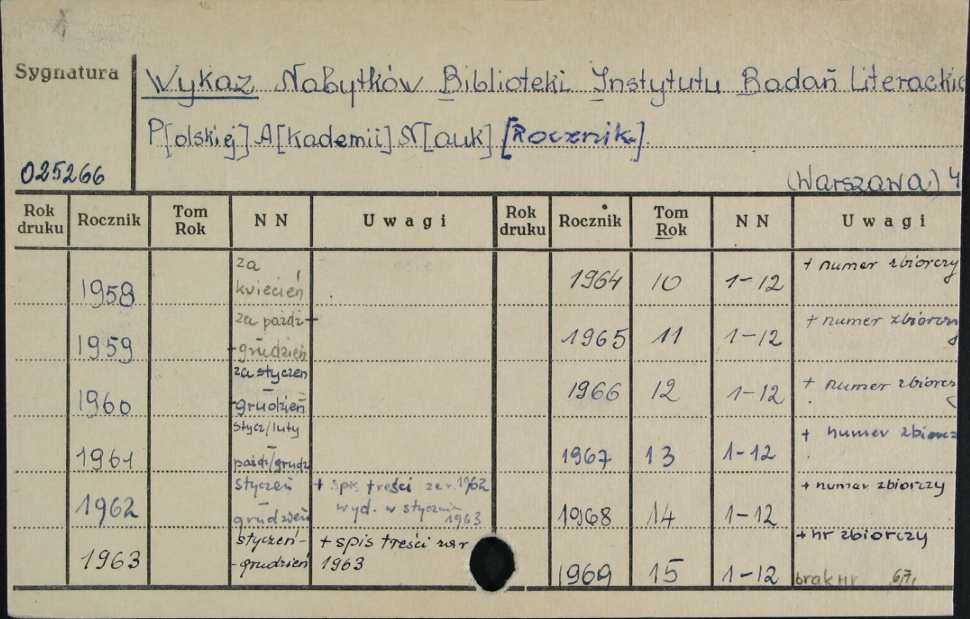 Sygnatura
Wykaz Nabytków Biblioteki Instytutu Badań Literackic
P[olskiej] A[kademii] N[auk] [Rocznik].
025266
(Warszawa) 4
Rok druku Rocznik Tom Rok N N Uwagi Rok druku Rocznik Tom Rok N N Uwagi
1958 za kwiecień
1959 za paźdz- -grudzień
1960 za styczeń -grudzień
1961 stycz/luty paźdz/grudz
1962 styczeń grudzień + spis treści za r. 1962 wyd. w styczniu 1963
1963 styczeń- -grudzień + spis treści za r 1963
1964 10 1-12 + numer zbiorczy
1965 11 1-12 + numer zbiorczy
1966 12 1-12 + numer zbiorcz
1967 13 1-12 + numer zbiorcz
1968 14 1-12 + numer zbiorczy
1969 15 1-12 + nr zbiorczy brak nr 6,7,